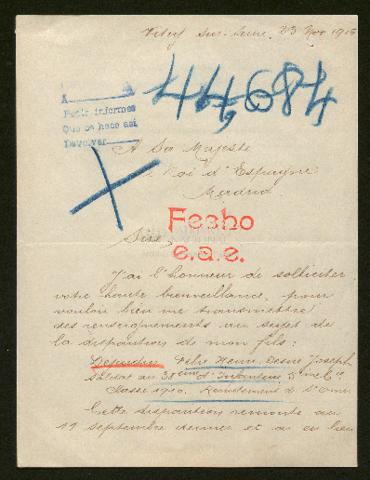 Vitry sur Seine, 23 Nov 1916
44,684
A
Pedir informes
Que se hace así
Devolver
A Sa Majesté
Roi d'Espagne
Madrid
Fecho
e.a.e.
Sire,
J'ai l'honneur de solliciter
votre haute bienveillance, pour
vouloir bien me transmettre
des renseignements au sujet de
la disparition de mon fils:
Felix Henri Desiré Joseph
Soldat au d'Infanterie 5me Cie
Classe 1910. Recrutement de St Omer
Cette disparition remonte au
17 septembre dernier et a eu lieu